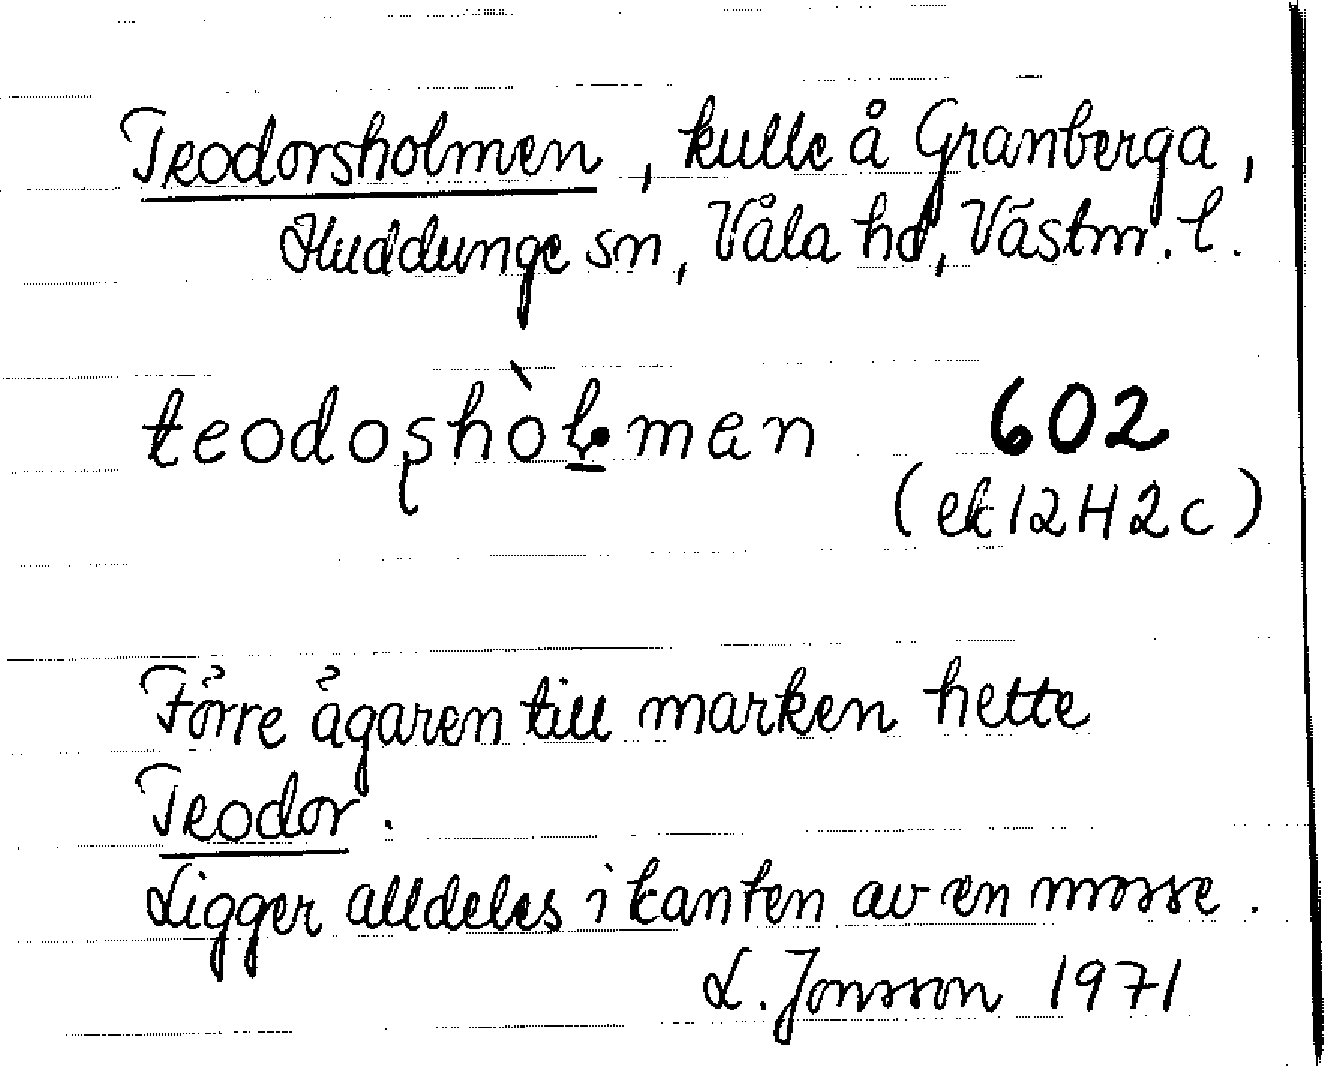 Teodorsholmen, kulle å Granberga,
Huddunge sn, Våla hd, Västm. l.
602
(ek 12H2c)
Förre ägaren till marken hette
Teodor.
Ligger alldeles i kanten av en mosse.
L. Jonsson 1971